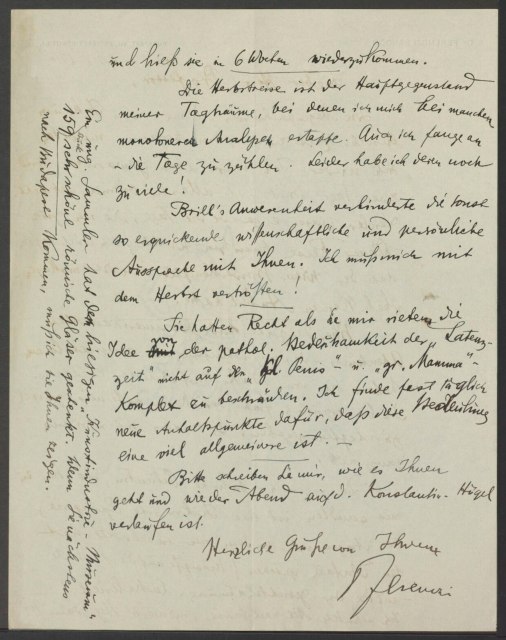 und hieß sie in 6 Wochen wiederzukommen.
Die Herbstreise ist der Hauptgegenstand
meiner Tagträume, bei denen ich mich bei manchen
monotoneren Analysen ertappe. Auch ich fange an
– die Tage zu zählen. Leider habe ich deren noch
zu viele!
Brill's Anwesenheit verhinderte die sonst
so erquickende wissenschaftliche und persönliche
Aussprache mit Ihnen. Ich muß mich mit
dem Herbst vertrösten!
Sie hatten Recht als Sie mir rieten die
Idee von der pathol. Bedeutsamkeit der „Latenz-
zeit" nicht auf den „kl. Penis"- u. „gr. Mamma"-
Komplex zu beschränken. Ich finde fast täglich
neue Anhaltspunkte dafür, daß diese Bedeutung
eine viel allgemeinere ist. —
Bitte schreiben Sie mir, wie es Ihnen
geht und wie der Abend auf d. Konstantin-Hügel
verlaufen ist.
Herzliche Grüße von Ihrem
Ferenczi
Ein ung. Sammler hat dem hiesigen „Kunstindustrie-Museum"
159 sehr schöne römische Gläser geschenkt. Wenn Sie nächstens
nach Budapest kommen, muß ich sie Ihnen zeigen.